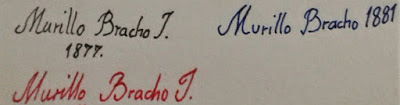 Murillo Bracho J.
1877.
Murillo Bracho 1881
Murillo Bracho J.